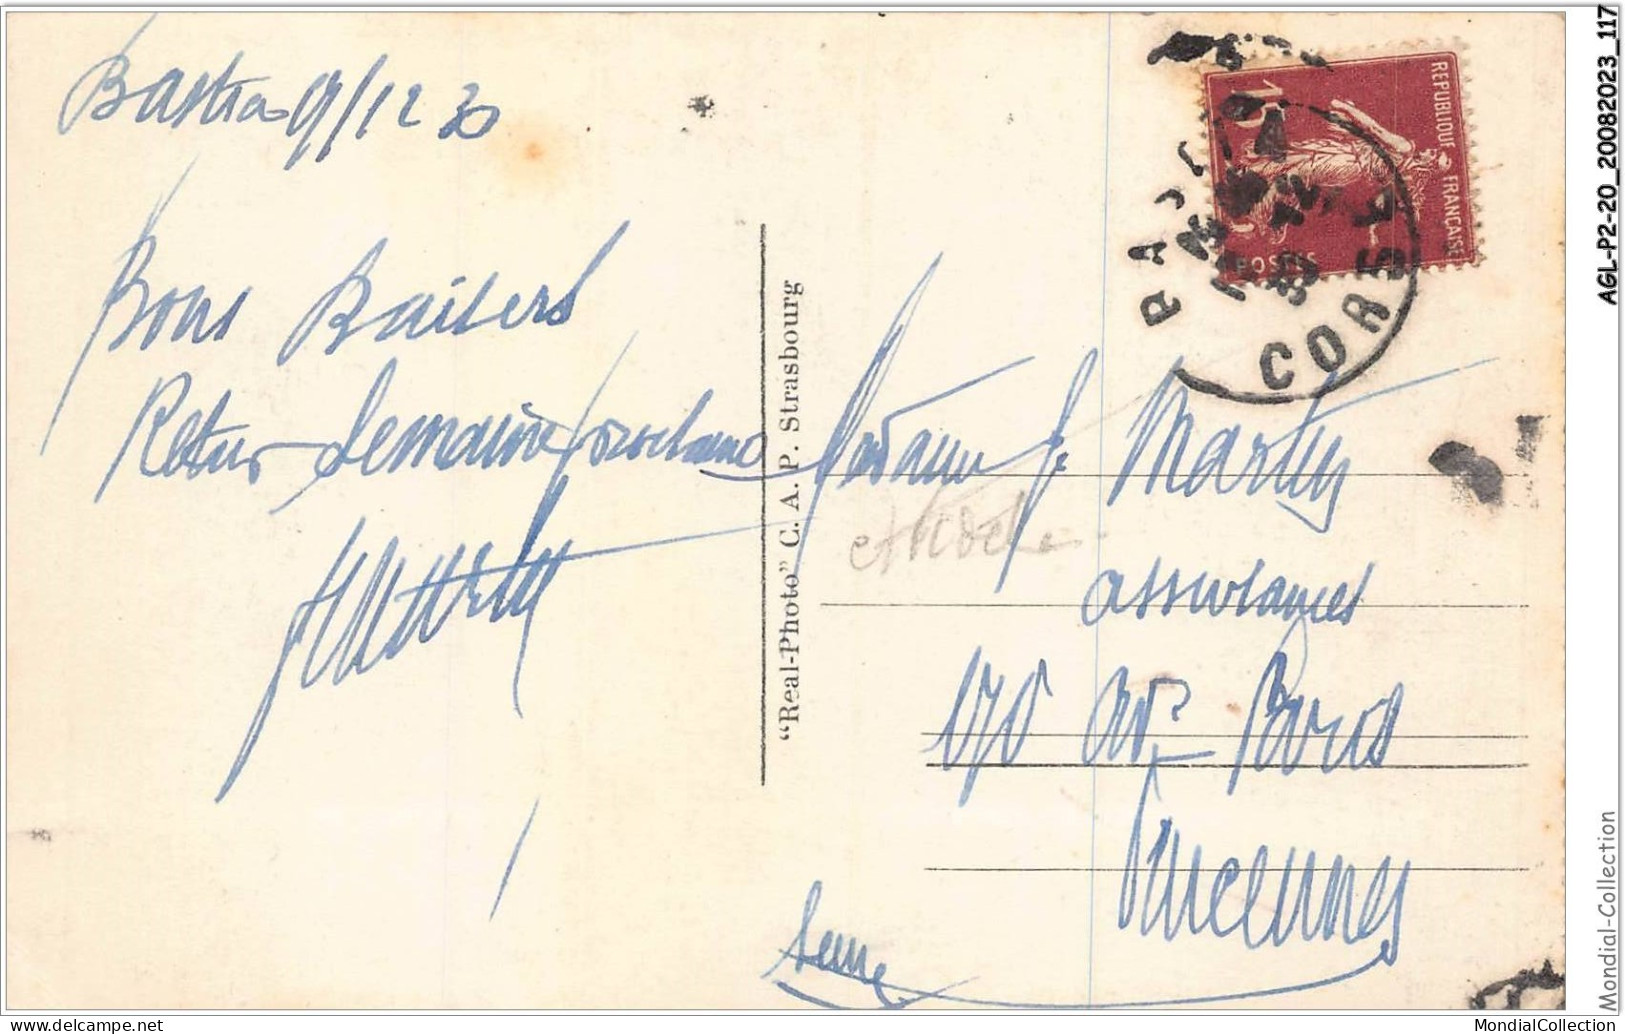 Bastia 9/12 30
Bons Baisers
Retour Semaine prochaine
"Real-Photo" C. A. P. Strasbourg
REPUBLIQUE FRANÇAISE
15
POSTES
BASTIA
CORSE
Madame J. Martin
assurances
170 av. Paris
Vincennes
Seine
AGL-P2-20_20082023_117
Mondial-Collection
www.delcampe.net
MondialCollection